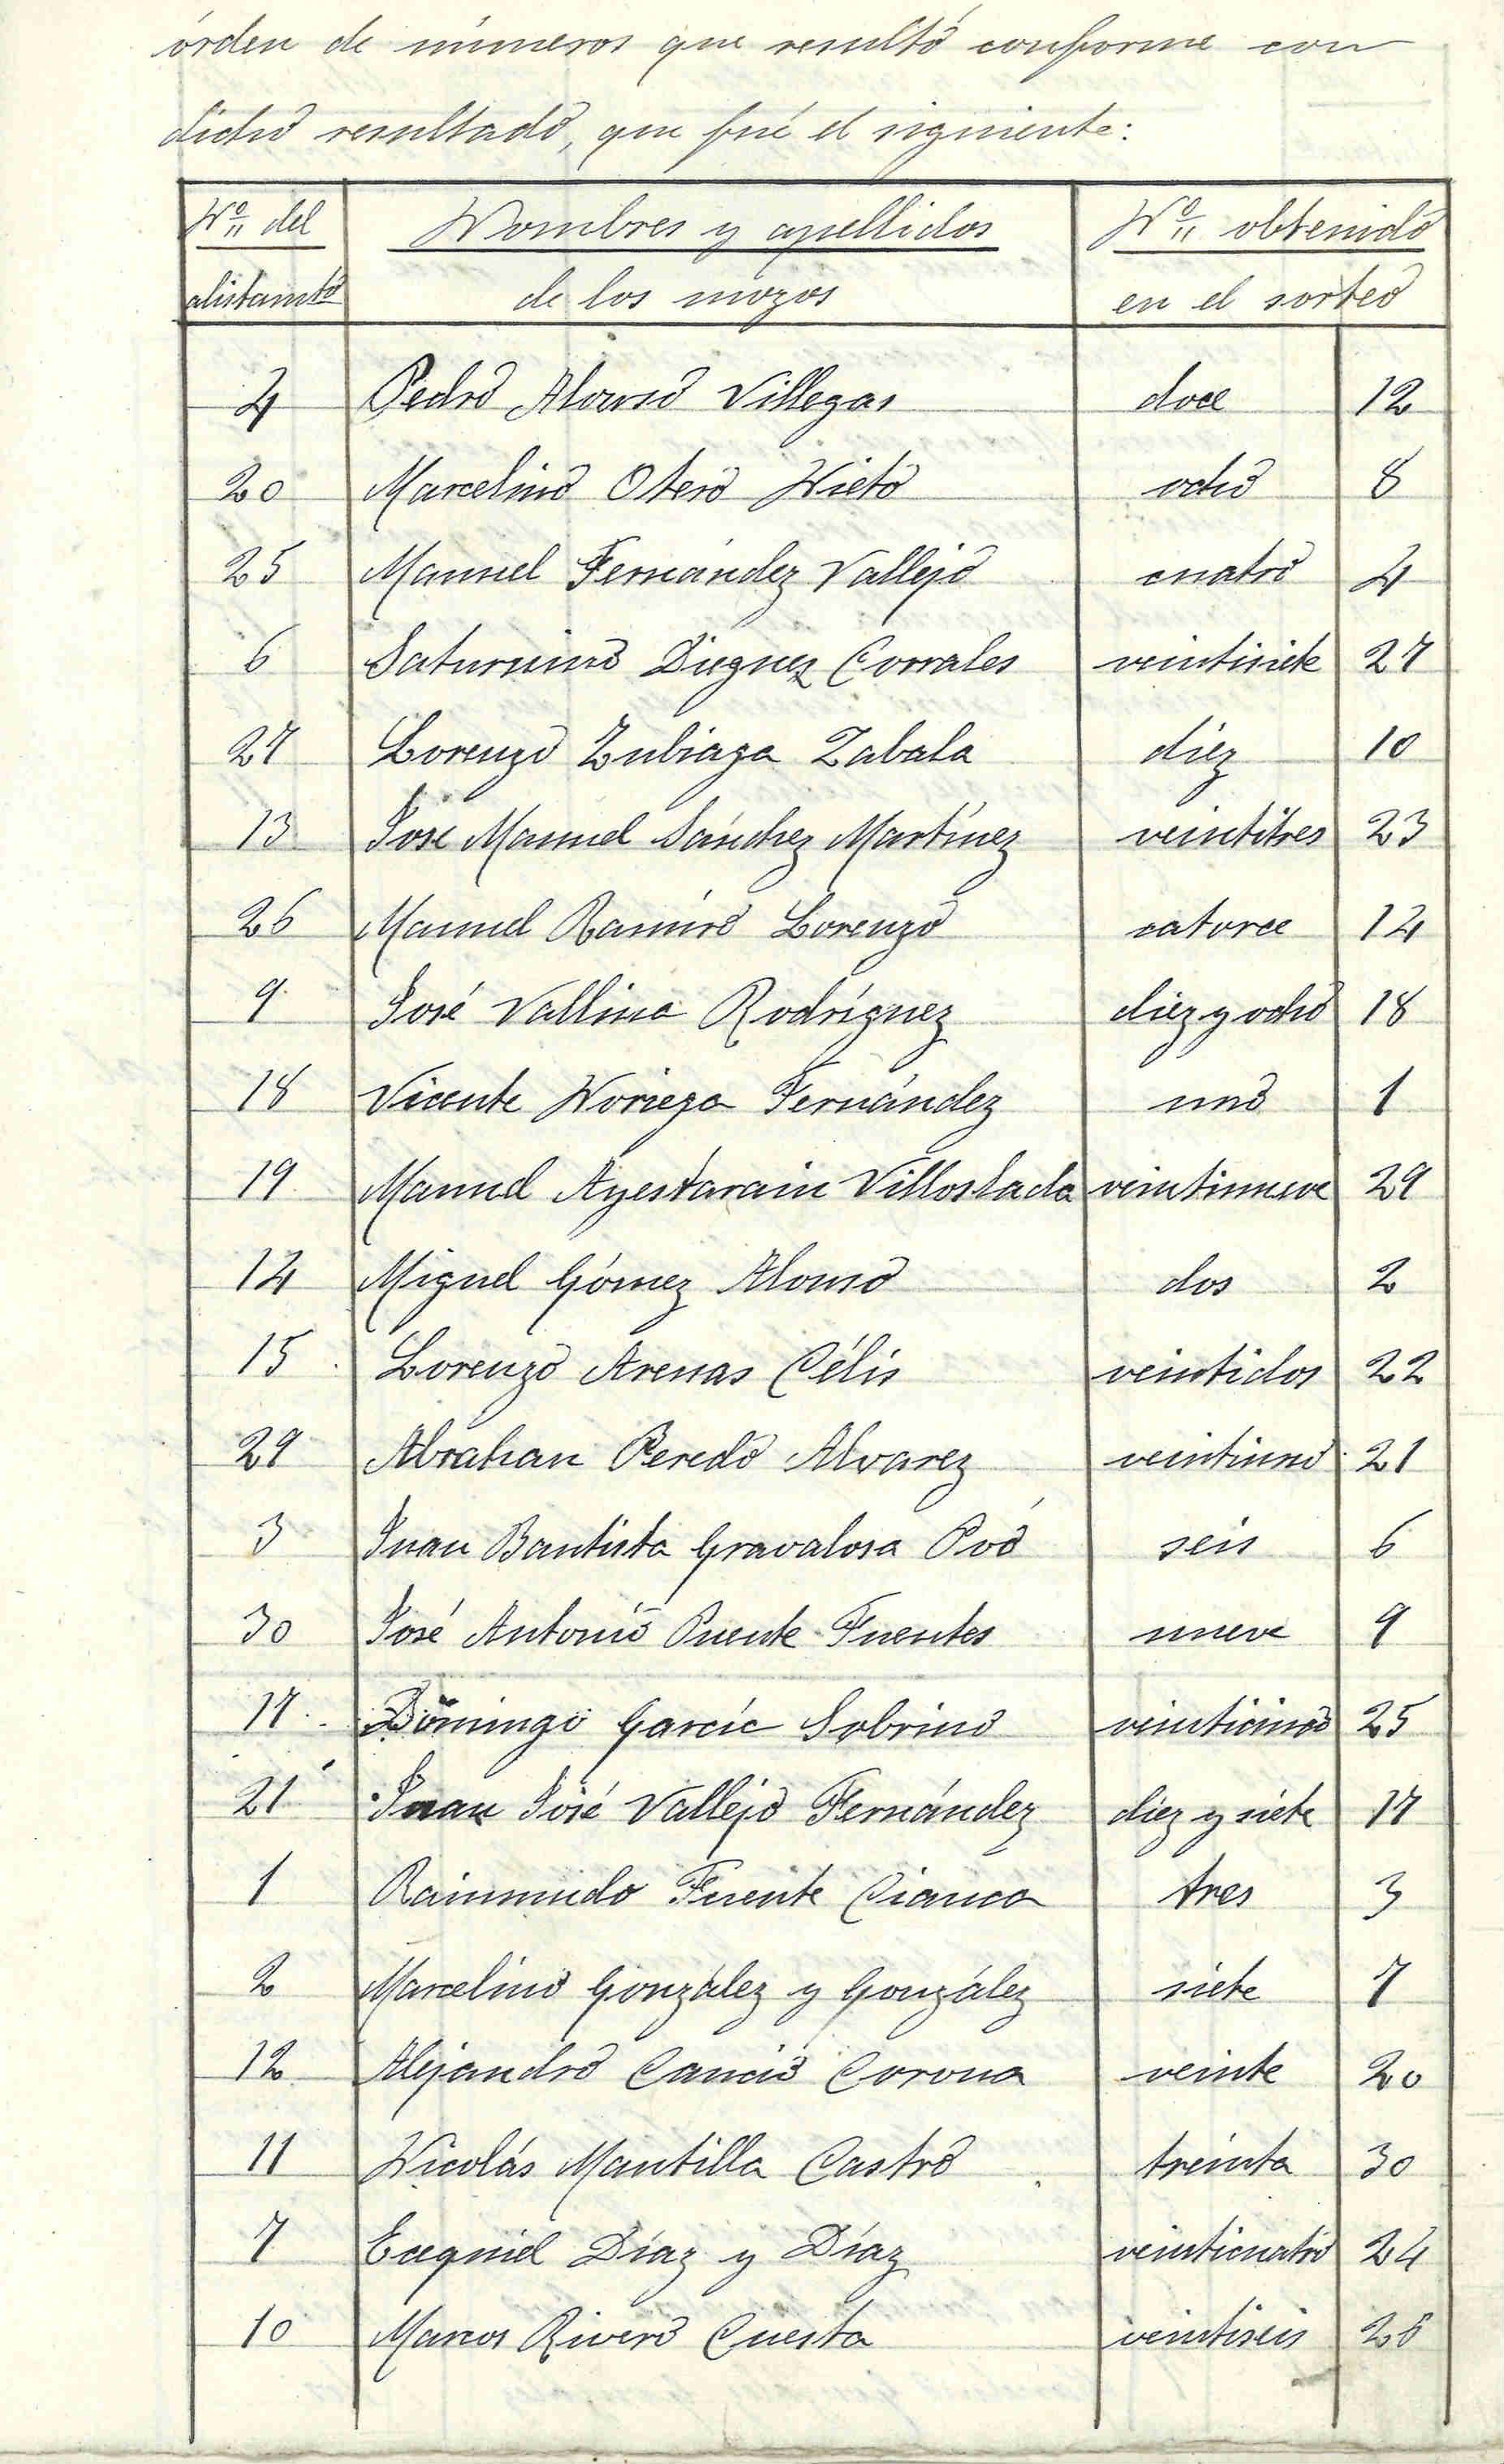 órden de números que resultó conforme con
dicho resultado, que fué el siguiente:
Nº del Nombres y apellidos Nº obtenido
alistamto de los mozos en el sorteo
4 Pedro Alonso Villegas doce 12
20 Marcelino Otero Nieto ocho 8
25 Manuel Fernández Vallejo cuatro 4
6 Saturnino Dieguez Corrales veintisiete 27
27 Lorenzo Zubiaga Zabala diez 10
13 José Manuel Sánchez Martínez veintitres 23
26 Manuel Ramiro Lorenzo catorce 14
9 José Vallina Rodríguez diez y ocho 18
18 Vicente Noriega Fernández uno 1
19 Manuel Ayestarain Villoslada veintinueve 29
14 Miguel Gómez Alonso dos 2
15 Lorenzo Arenas Célis veintidos 22
29 Abrahan Peredo Alvarez veintiuno 21
3 Juan Bautista Gravalosa Poó seis 6
30 José Antonio Puente Fuentes nueve 9
17 Domingo García Sobrino veinticinco 25
21 Juan José Vallejo Fernández diez y siete 17
1 Raimundo Fuente Cianca tres 3
2 Marcelino González y González siete 7
12 Alejandro Cancio Corona veinte 20
11 Nicolás Mantilla Castro treinta 30
7 Ecequiel Díaz y Díaz veinticuatro 24
10 Marcos Rivero Cuesta veintiseis 26